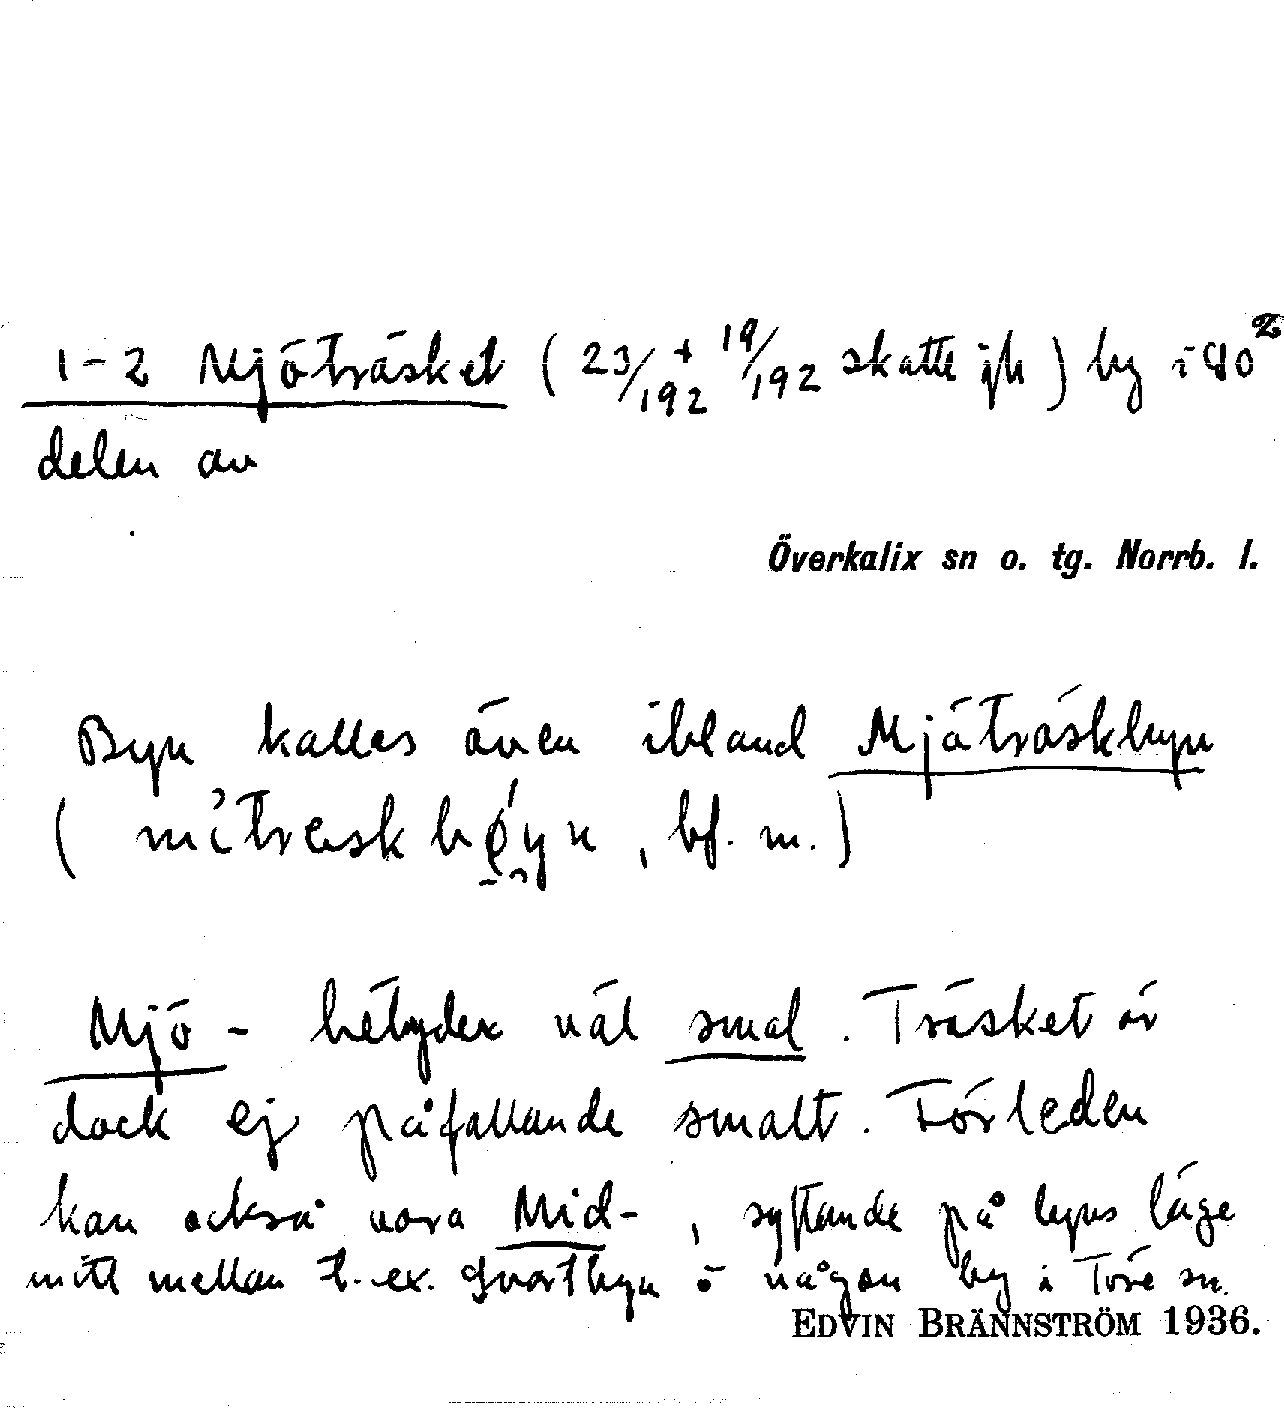 1-2 Mjöträsket (23/192 + 19/192 skatte jh) by i
delen av
Överkalix sn o. tg. Norrb. l.
Byn kallas även ibland Mjöträskbyn
bf. m.)
Mjö- betyder väl smal. Träsket är
dock ej påfallande smalt. Förleden
kan också vara Mid-, syftande på byns läge
mitt mellan t.ex. Svartbyn o någon by i Töre sn.
EDVIN BRÄNNSTRÖM 1936.